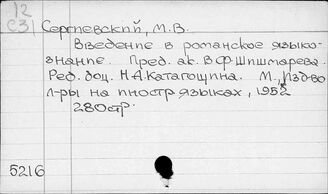 12
С31
Сергиевский, М.В.
Введение в романское языко-
знание. Пред. ак. В.Ф. Шишмарева.
Ред. доц. Н.А. Катагощина. М., Изд-во
л-ры на иностр. языках, 1952
280стр.
5216